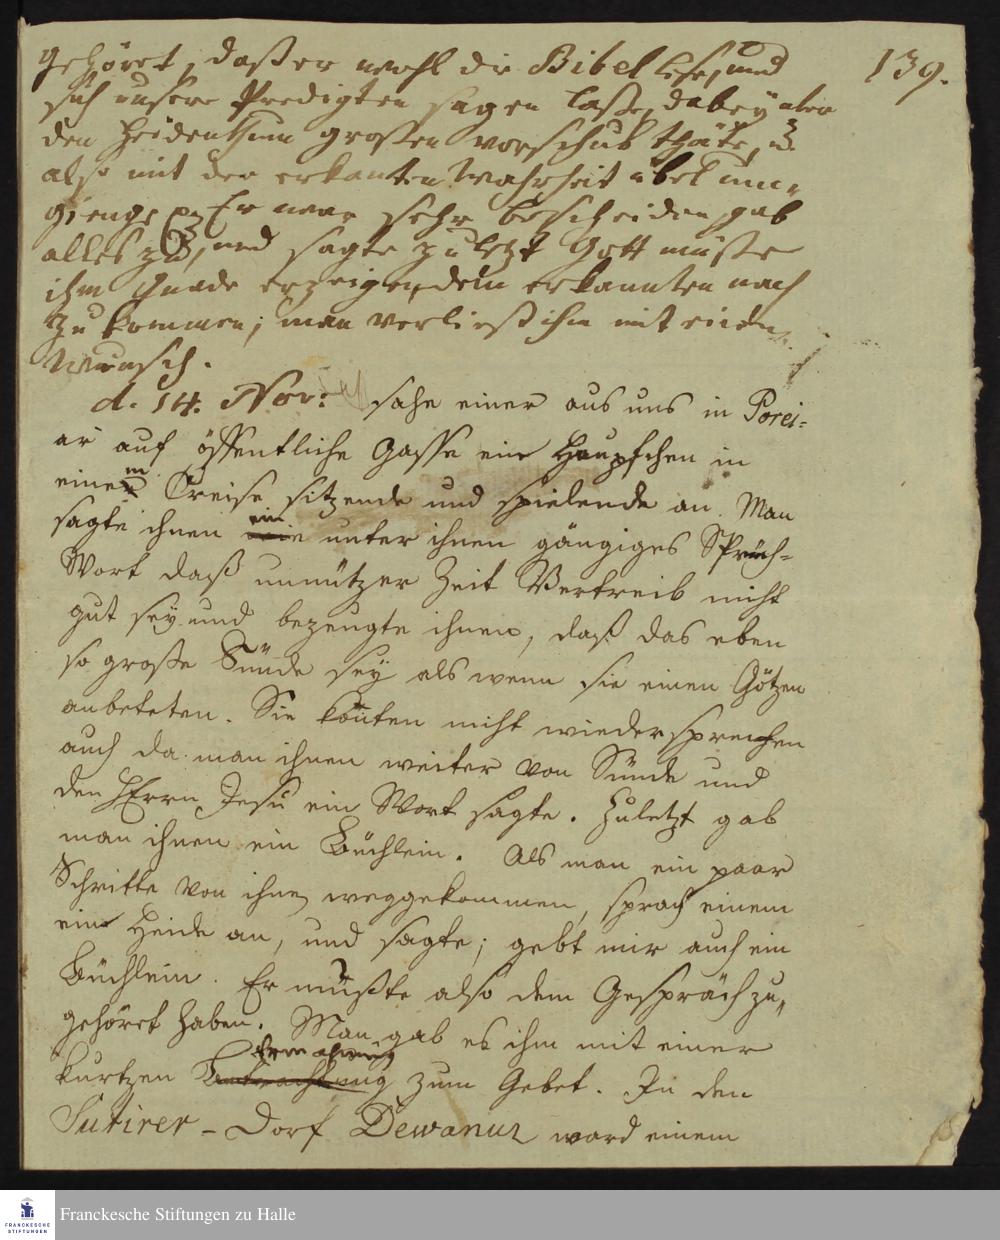 139.
gehöret, daß er wohl die Bibel lese, und
sich unsere Predigten sagen lasse, dabey aber
den Heidenthum grossen vorschub thäte, u.
also mit der erkanten Wahrheit übel um-
gienge. Er war sehr bescheiden, gab
alles zu, und sagte zu letzt Gott müste
ihm Gnade erzeigen, dem erkannten nach
zu kommen; man verließ ihn mit einem
Wunsch.
d. 14. Nov: sahe einer aus uns in Porei-
ar auf öffentliche Gasse ein Häupfchen in
einem Creise sitzende und spielende an. Man
sagte ihnen ein unter ihnen gängiges Sprüch-
Wort daß unnützer Zeit Vertreib nicht
gut sey und bezeugte ihnen, daß das eben
so große Sünde sey als wenn sie einen Götzen
anbeteten. Sie konten nicht wiedersprechen
auch da man ihnen weiter von Sünde und
den HErrn Jesu ein Wort sagte. Zuletzt gab
man ihnen ein Büchlein. Als man ein paar
Schritte von ihnen weggekommen, sprach einem
ein Heide an, und sagte; gebt mir auch ein
Büchlein. Er mußte also dem Gespräch zu-
gehöret haben. Man gab es ihm mit einer
kurtzen Ermahnung zum Gebet. In den
Sutirer-Dorf Dewanur ward einem
FRANCKESCHE
STIFTUNGEN
Franckesche Stiftungen zu Halle